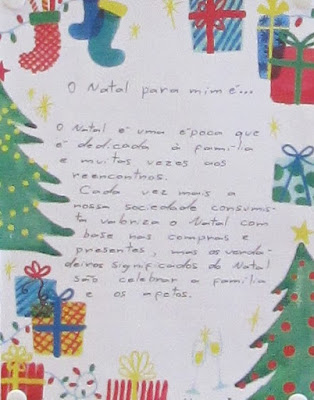 O Natal para mim é...
O Natal é uma época que
é dedicada à família
e muitas vezes aos
reencontros.
Cada vez mais a
nossa sociedade consumis-
ta valoriza o Natal com
base nas compras e
presentes, mas os verda-
deiros significados do Natal
são celebrar a família
e os afetos.